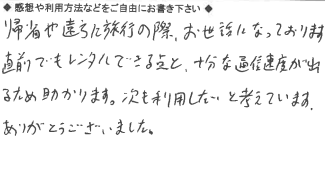 ◆ 感想や利用方法などをご自由にお書き下さい ◆
帰省や遠方に旅行の際、お世話になっております
直前でもレンタルできる点と、十分な通信速度が出
るため助かります。次も利用したいと考えています。
ありがとうございました。